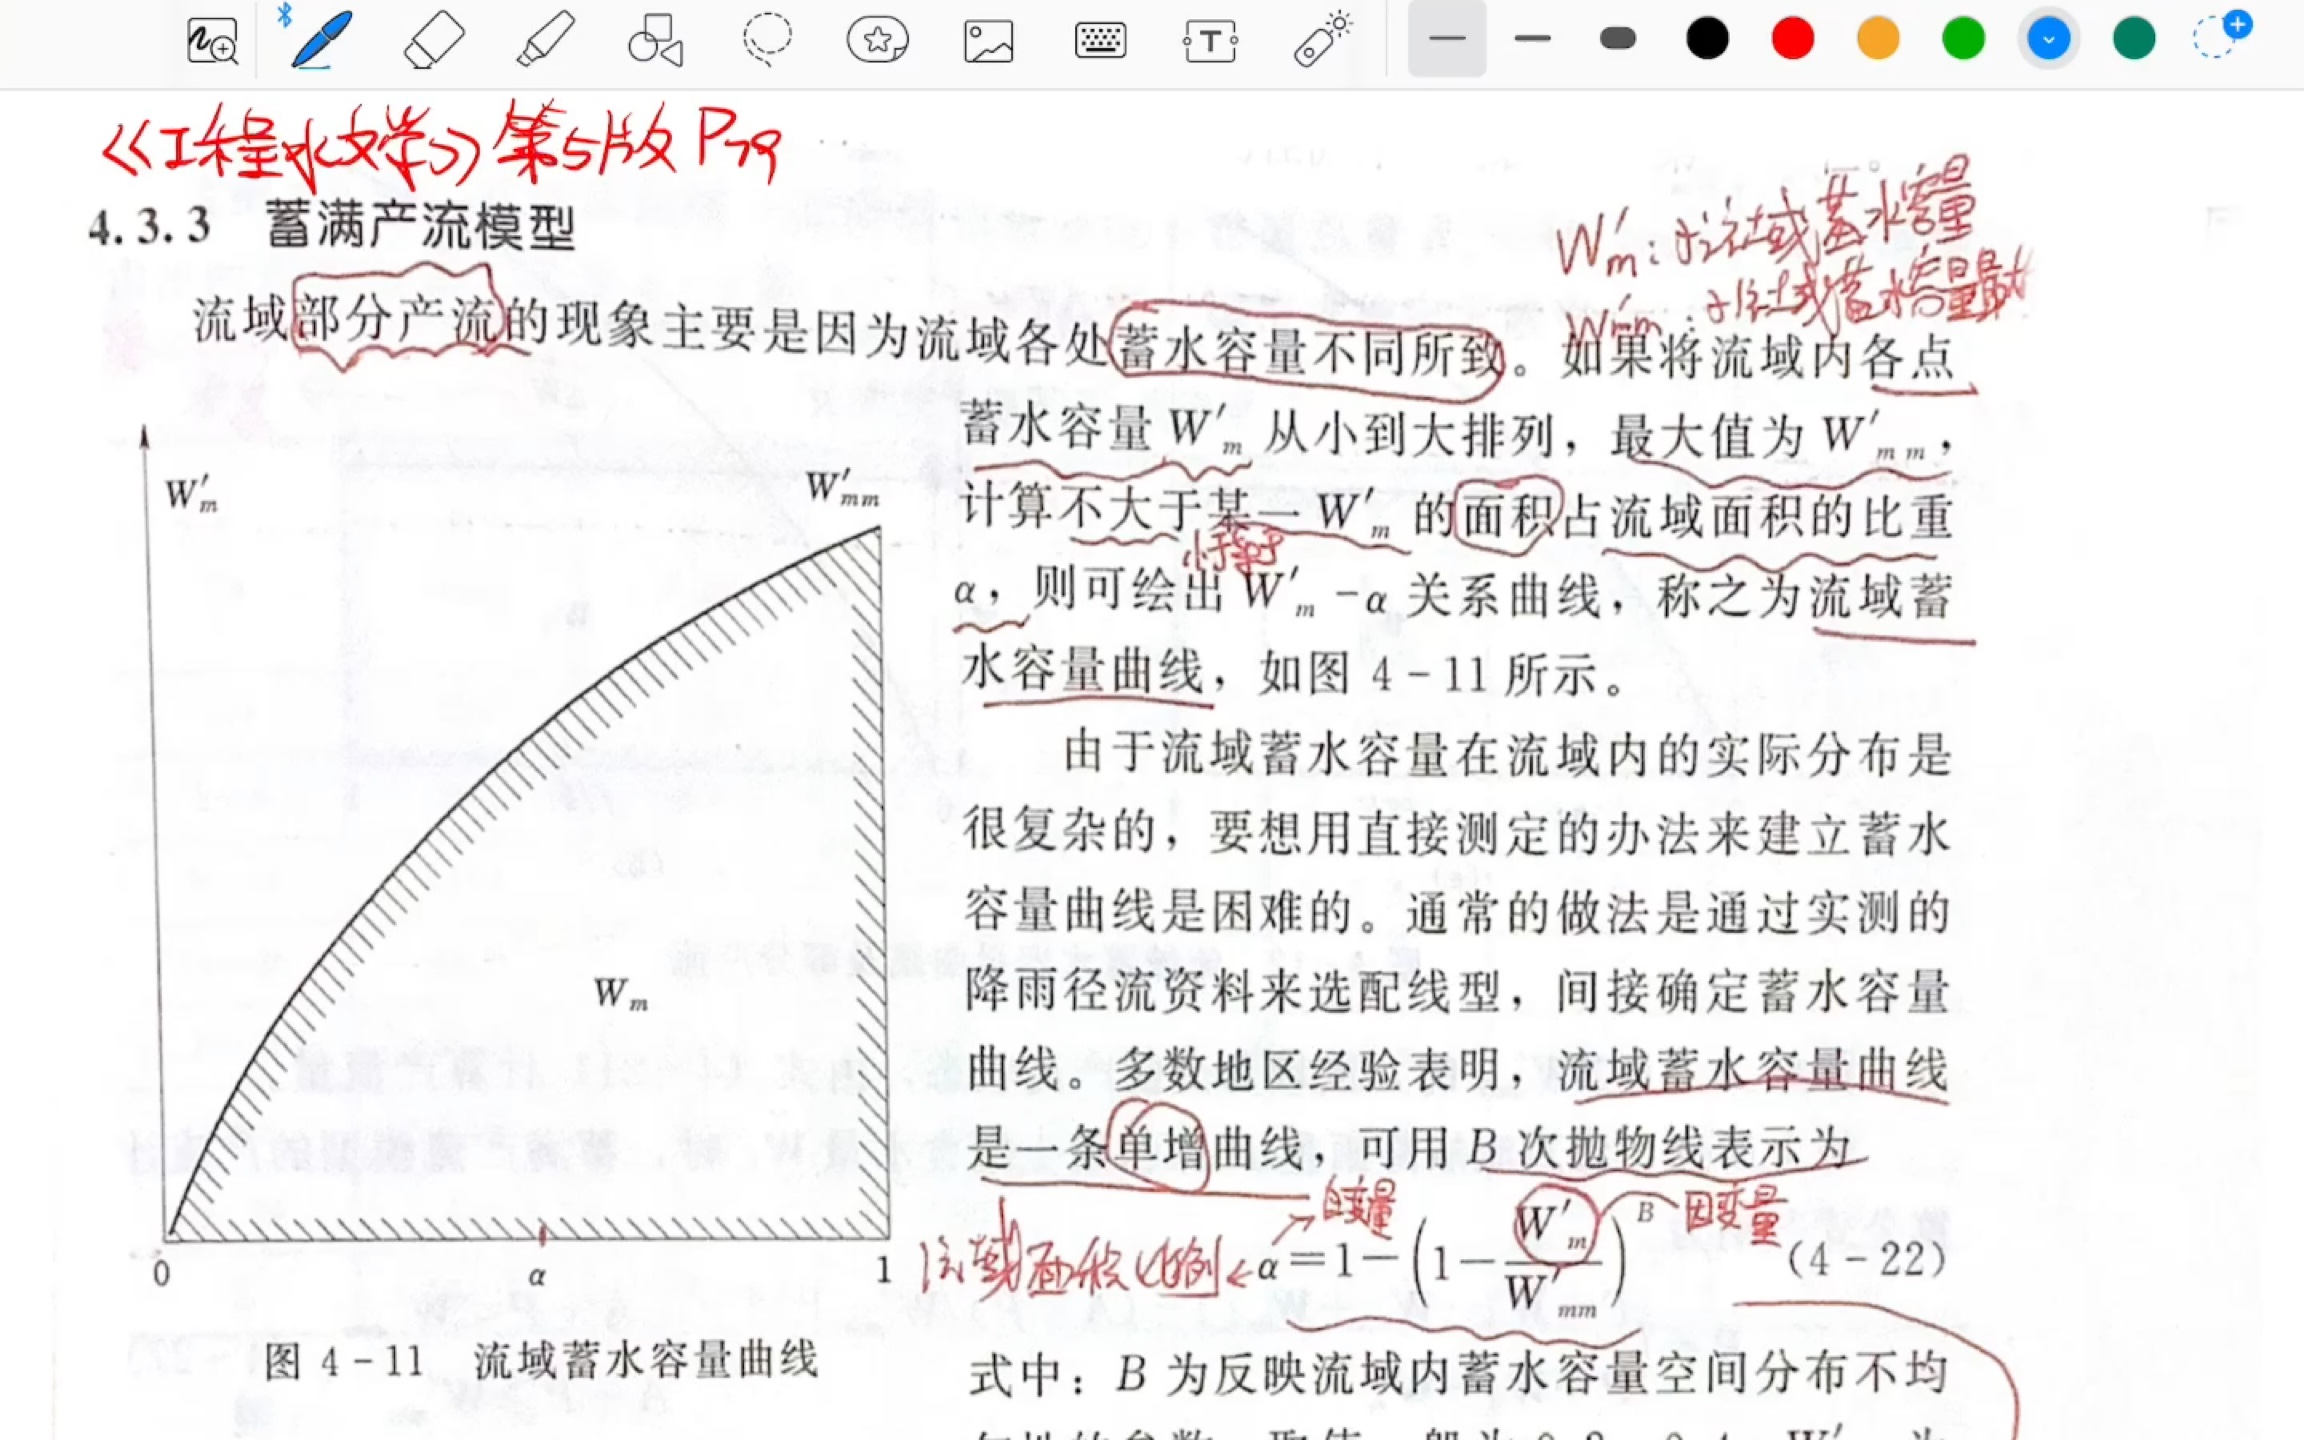 《工程水文学》第5版 P79
4.3.3 蓄满产流模型
W′m：流域蓄水容量
W′mm：流域蓄水容量最大
流域部分产流的现象主要是因为流域各处蓄水容量不同所致。如果将流域内各点
蓄水容量 W′m 从小到大排列，最大值为 W′mm，
计算不大于某一 W′m 的面积占流域面积的比重
小于等于
α，则可绘出 W′m-α 关系曲线，称之为流域蓄
水容量曲线，如图 4-11 所示。
由于流域蓄水容量在流域内的实际分布是
很复杂的，要想用直接测定的办法来建立蓄水
容量曲线是困难的。通常的做法是通过实测的
降雨径流资料来选配线型，间接确定蓄水容量
曲线。多数地区经验表明，流域蓄水容量曲线
是一条单增曲线，可用 B 次抛物线表示为
自变量
因变量
流域面积比例
α=1-(1-W′m/W′mm)^B (4-22)
式中：B 为反映流域内蓄水容量空间分布不均
W′m
W′mm
Wm
0 α 1
图 4-11 流域蓄水容量曲线
T